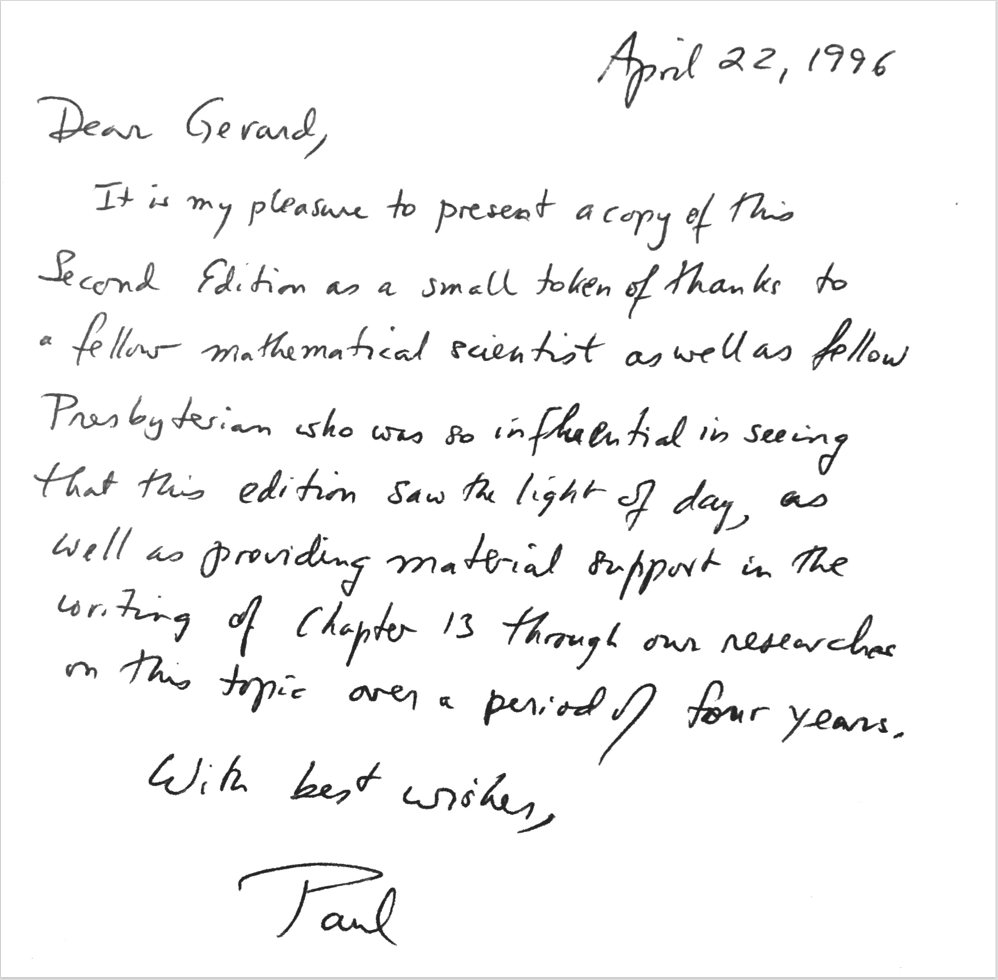 April 22, 1996
Dear Gerard,
It is my pleasure to present a copy of this
Second Edition as a small token of thanks to
a fellow mathematical scientist as well as fellow
Presbyterian who was so influential in seeing
that this edition saw the light of day, as
well as providing material support in the
writing of Chapter 13 through our researches
on this topic over a period of four years.
With best wishes,
Paul